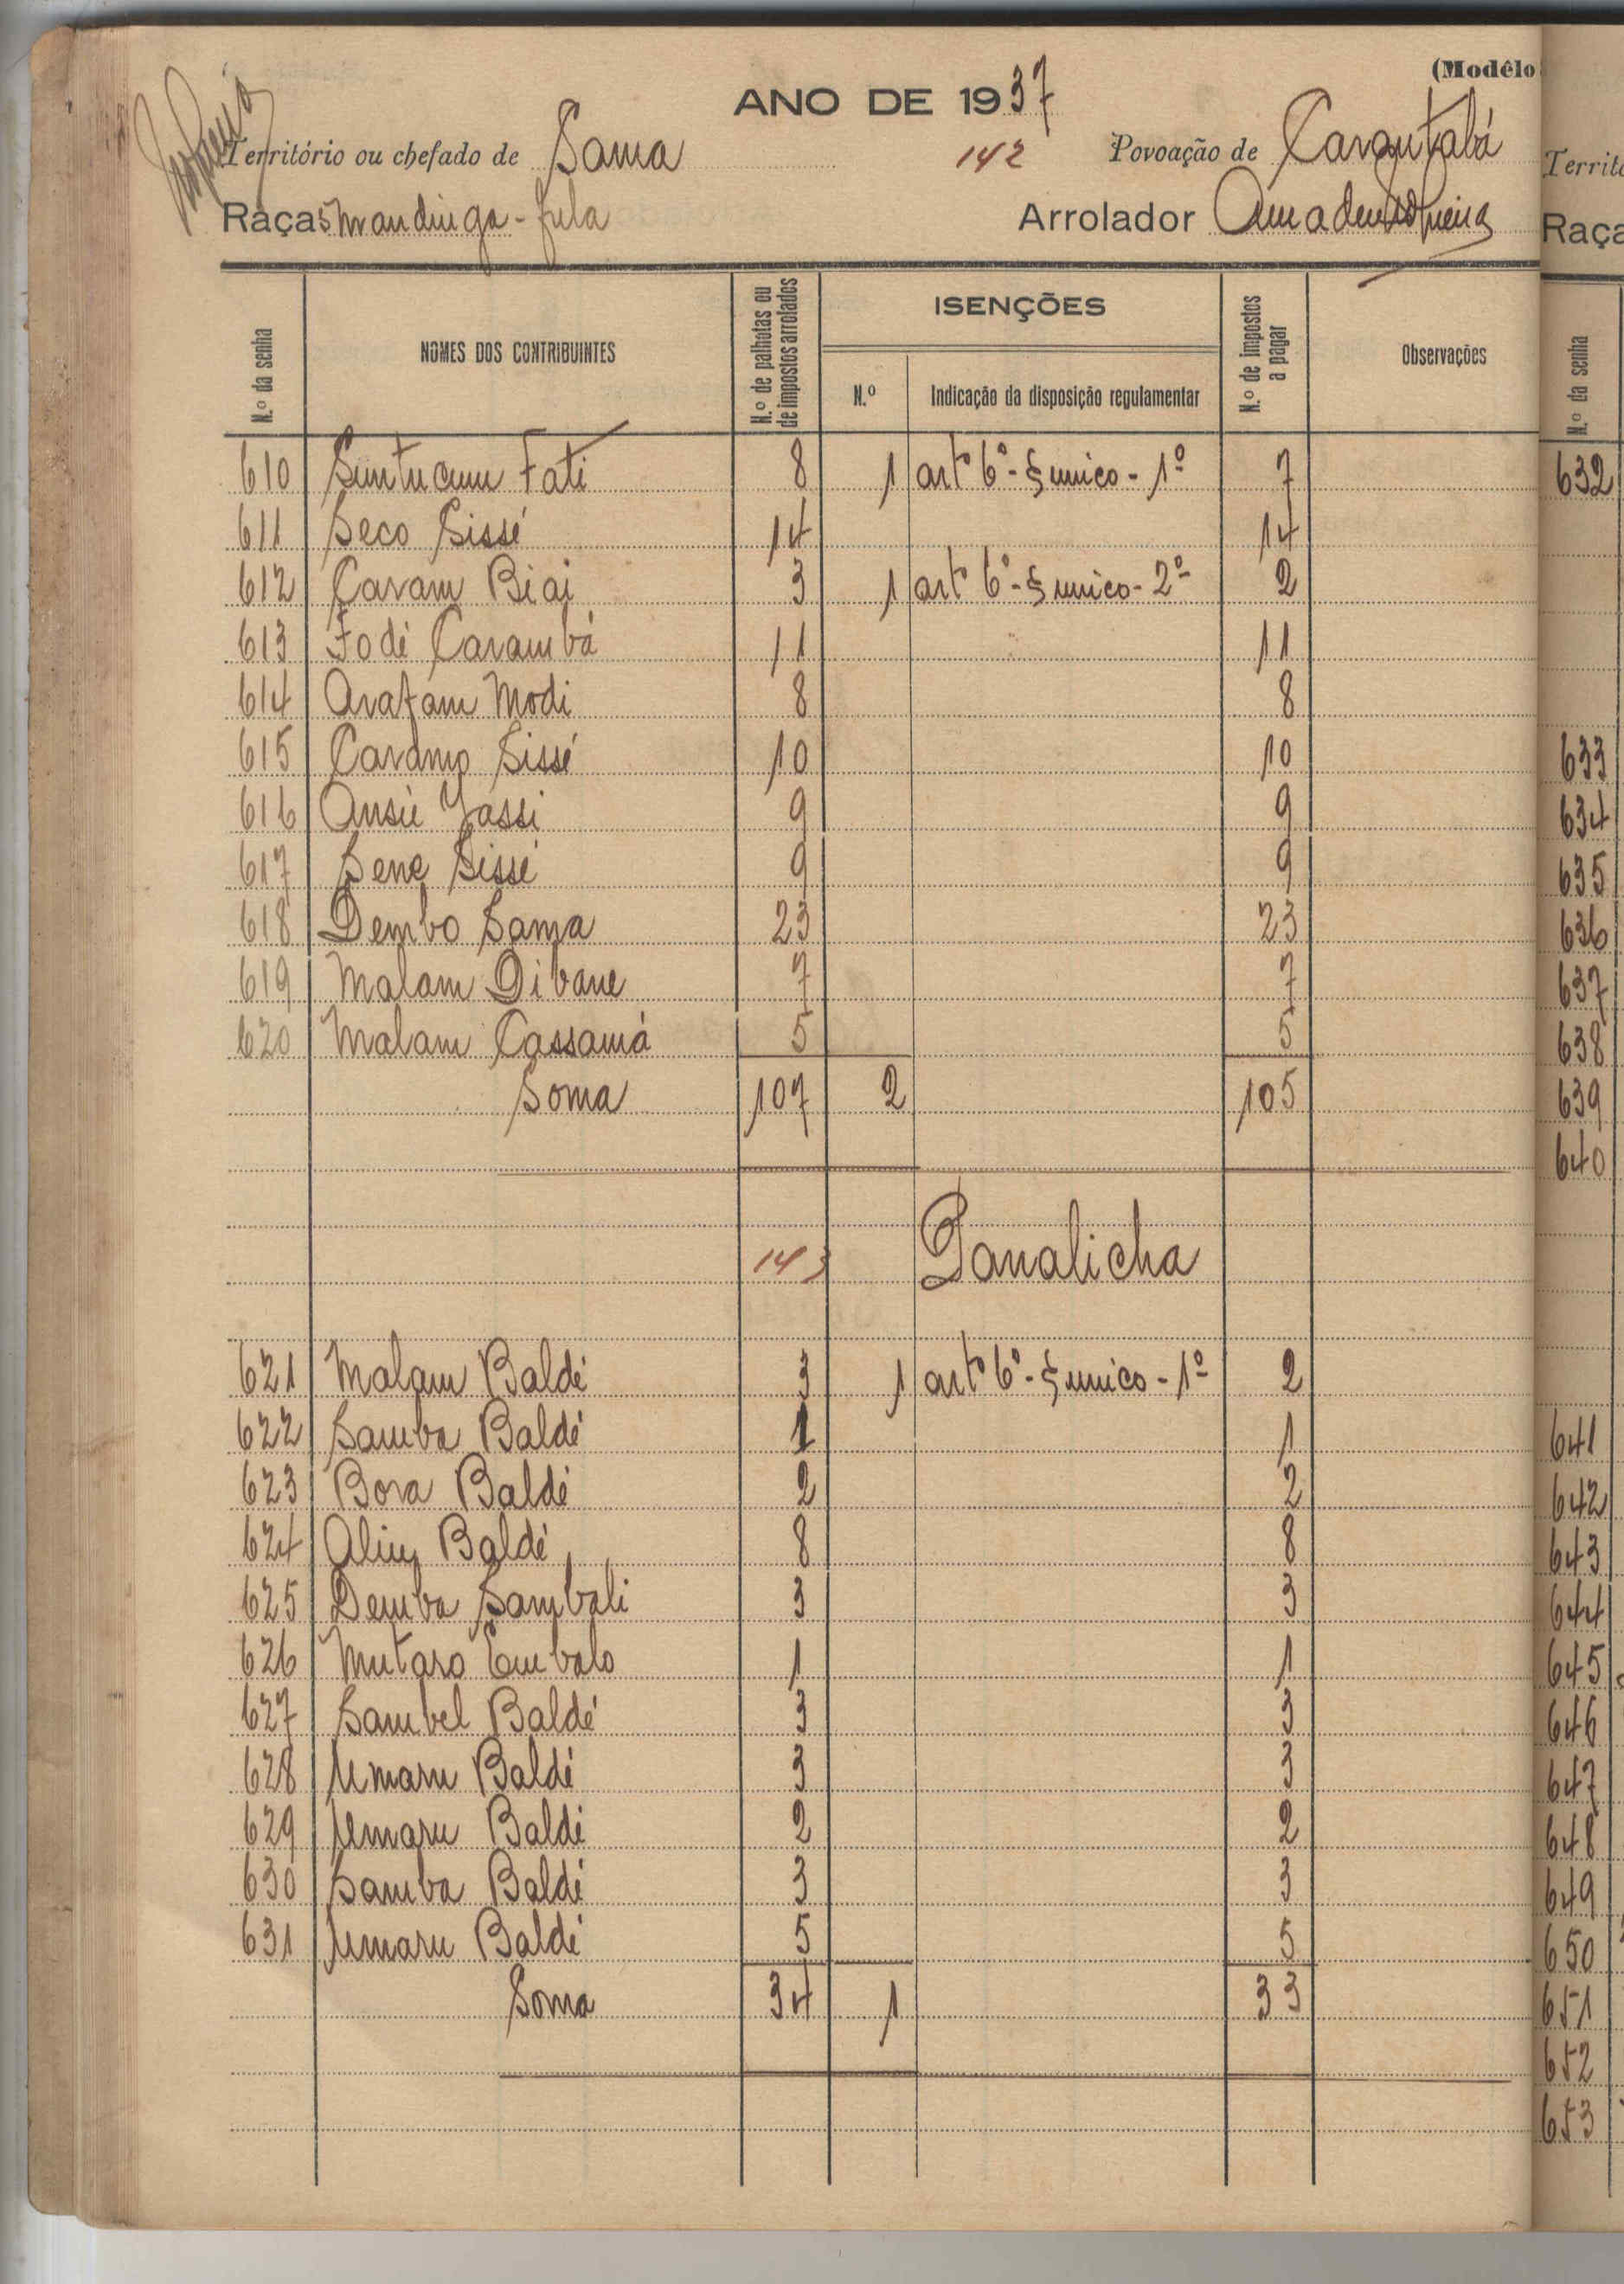 (Modêlo
ANO DE 1937
Território ou chefado de Sama 142 Povoação de Carantabá
Raças mandinga - fula Arrolador
N.º da senha NOMES DOS CONTRIBUINTES N.º de palhotas ou de impostos arrolados ISENÇÕES N.º Indicação da disposição regulamentar N.º de impostos a pagar Observações
610 Suntucum Fati 8 1 artº 6º - § unico - 1º 7
611 Seco Sissé 14 14
612 Caram Biai 3 1 artº 6º - § unico - 2º 2
613 Fodé Carambá 11 11
614 Arafam Modi 8 8
615 Caramo Sissé 10 10
616 Ansú Jassi 9 9
617 Sene Sissé 9 9
618 Dembo Sama 23 23
619 Malam Dibane 7 7
620 Malam Cassamá 5 5
Soma 107 2 105
143 Panalicha
621 Malam Baldé 3 1 artº 6º - § unico - 1º 2
622 Samba Baldé 1 1
623 Bora Baldé 2 2
624 Aliu Baldé 8 8
625 Demba Sambali 3 3
626 Mutaro Embalo 1 1
627 Sambel Baldé 3 3
628 Umaru Baldé 3 3
629 Umaru Baldé 2 2
630 Samba Baldé 3 3
631 Umaru Baldé 5 5
Soma 34 1 33
Territ
Raça
N.º da senha
632
633
634
635
636
637
638
639
640
641
642
643
644
645
646
647
648
649
650
651
652
653